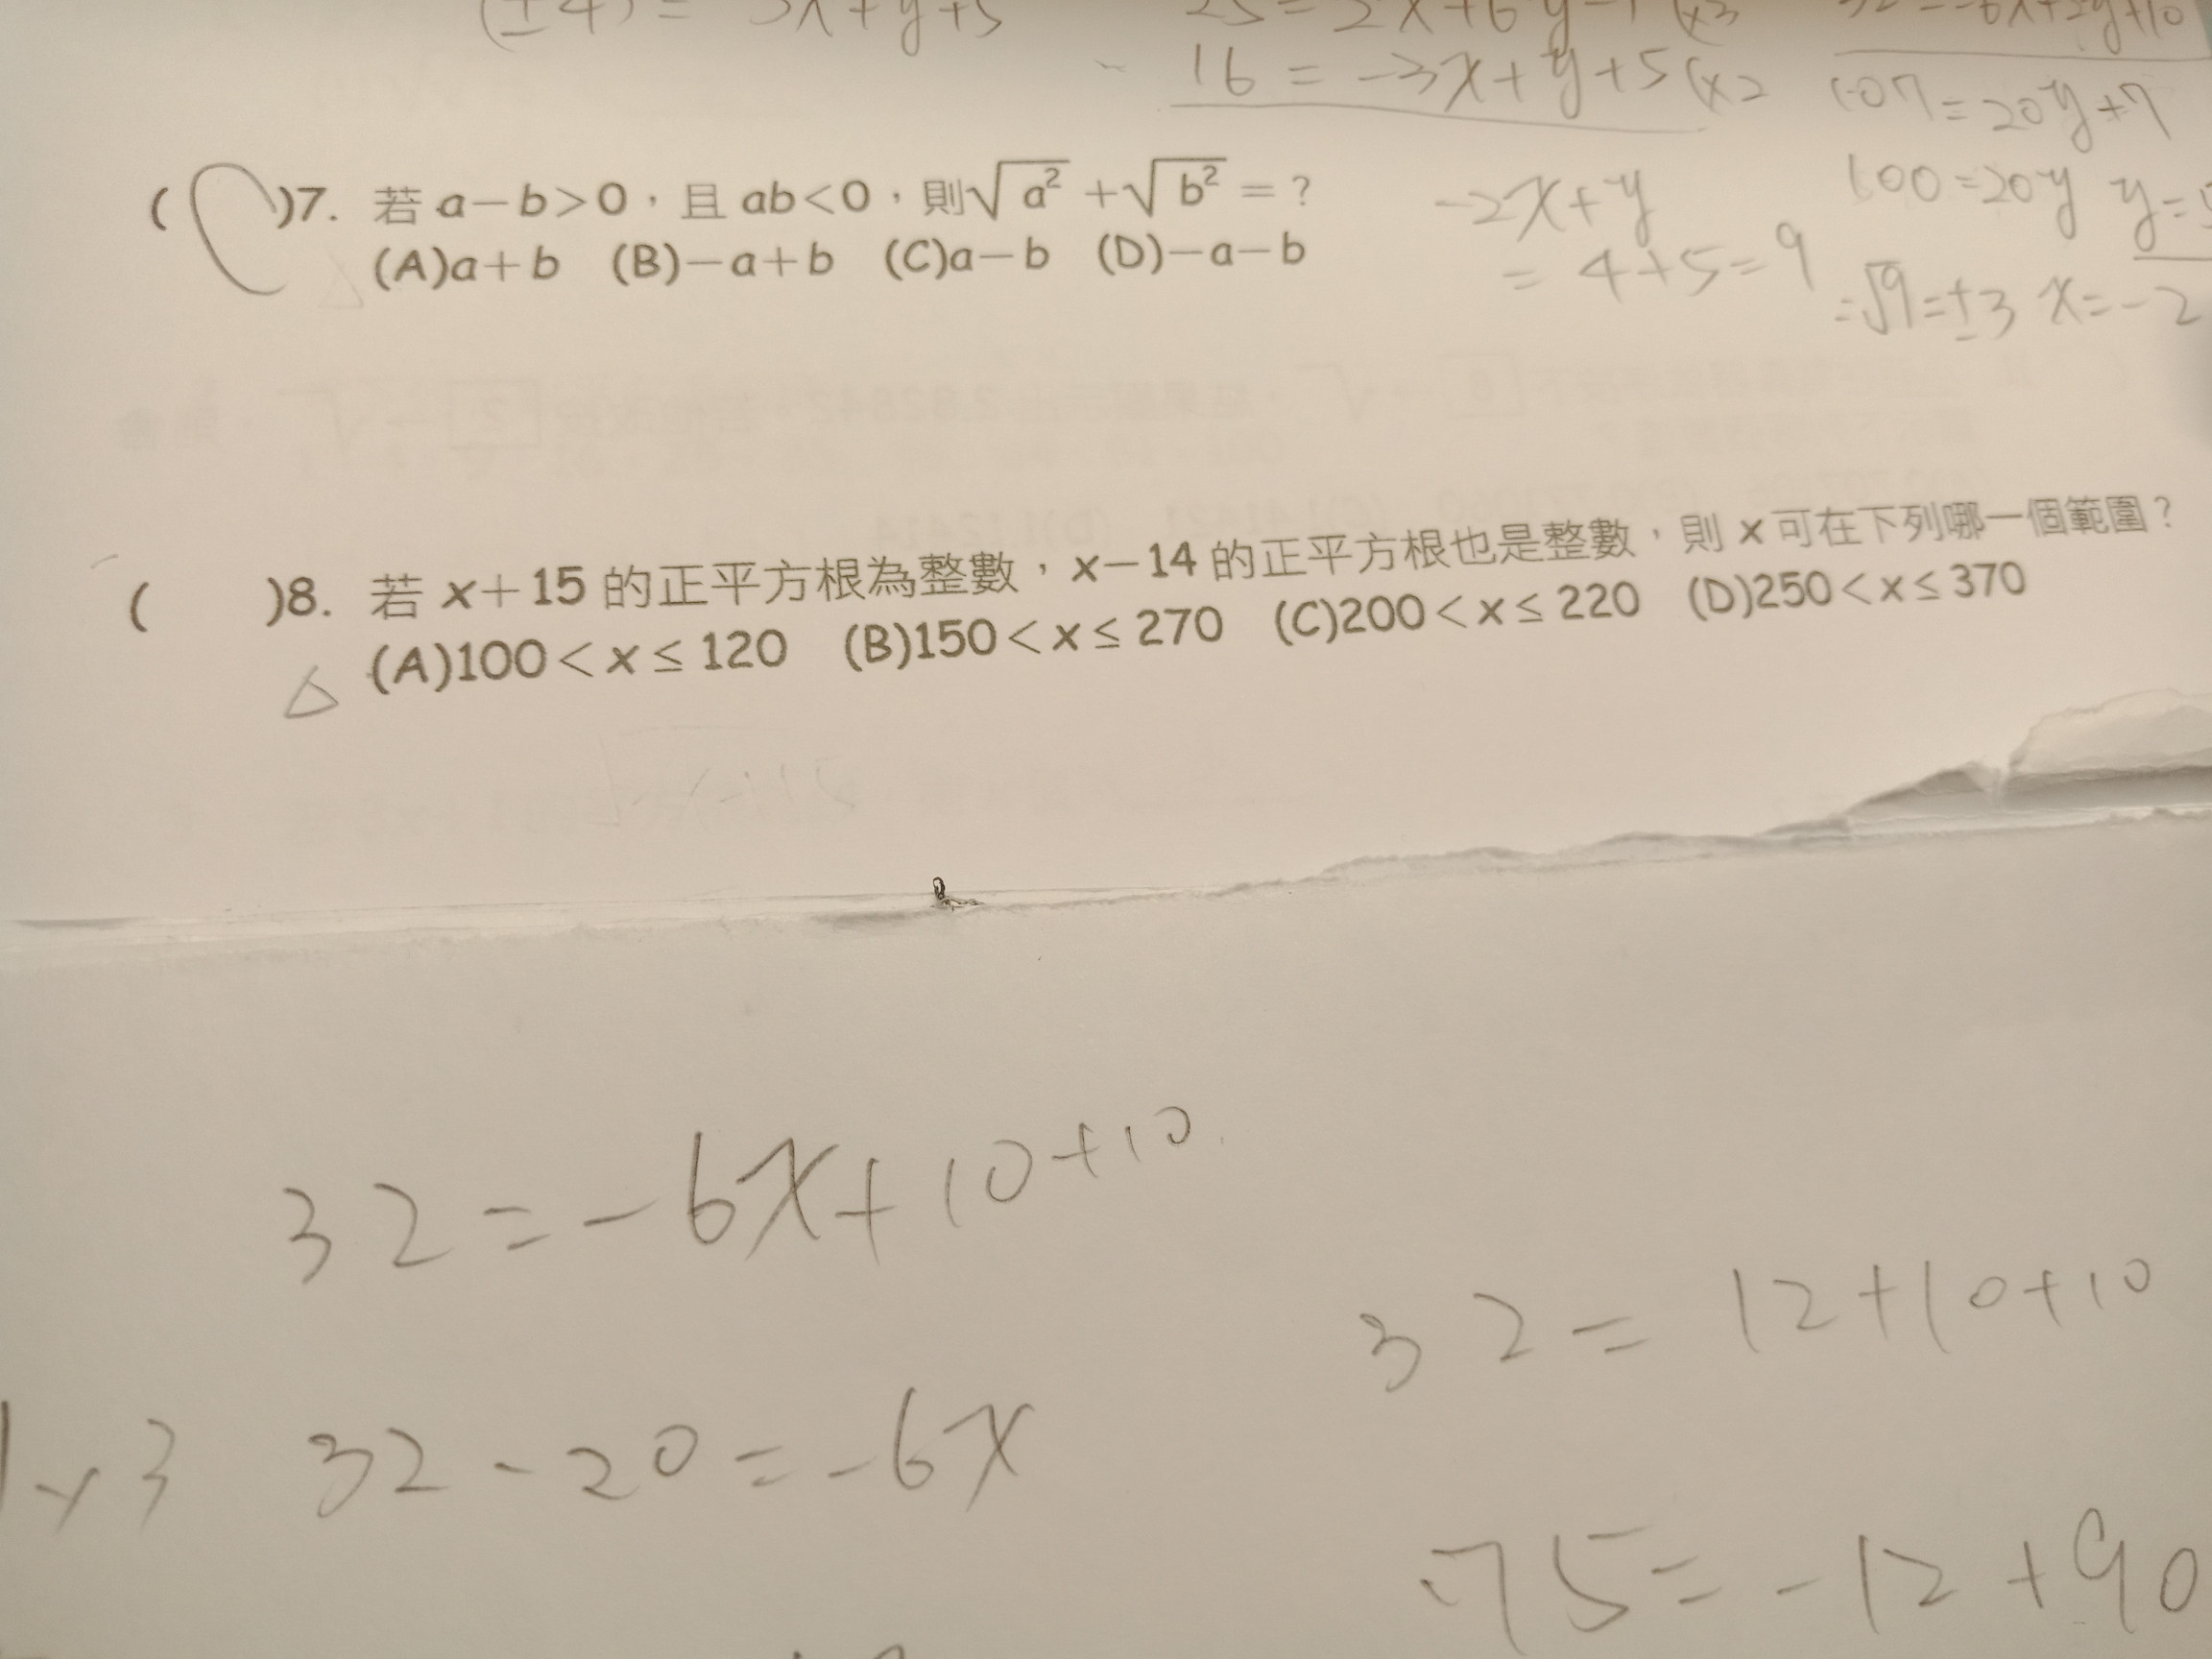 (±4) = 3x+y+5
25 = 2x+6y-1 (x3
16 = -3x+y+5 (x2
32 = -6x+2y+10
107 = 20y+7
100 = 20y y =
-2x+y
= 4+5=9
=√9=±3 x=-2
( C )7. 若 a-b>0，且 ab<0，則√a² +√b² =？
(A)a+b (B)-a+b (C)a-b (D)-a-b
( )8. 若 x+15 的正平方根為整數，x-14 的正平方根也是整數，則 x 可在下列哪一個範圍？
△ (A)100<x≤120 (B)150<x≤270 (C)200<x≤220 (D)250<x≤370
32=-6x+10+10
32= 12+10+10
32-20=-6x
75=-12+90